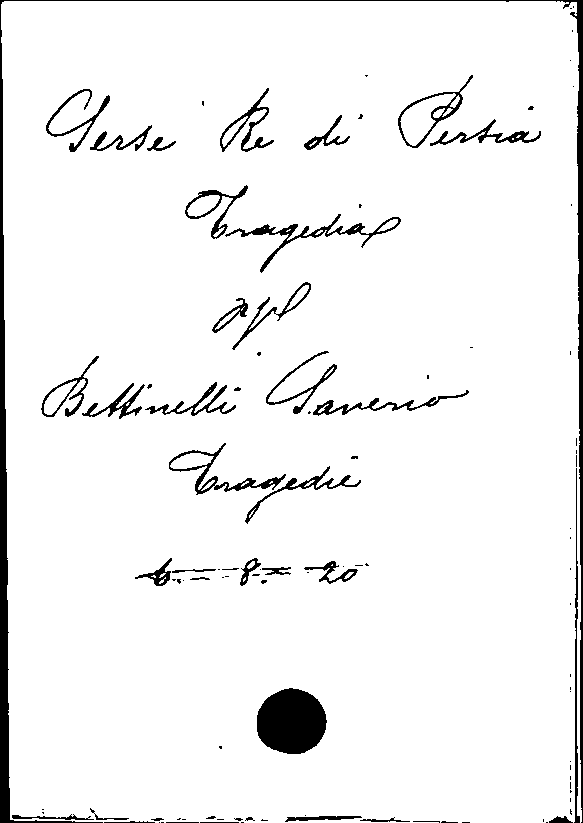 Serse Re di Persia
Tragedia
Bettinelli Saverio
Tragedie
6. 8. 20